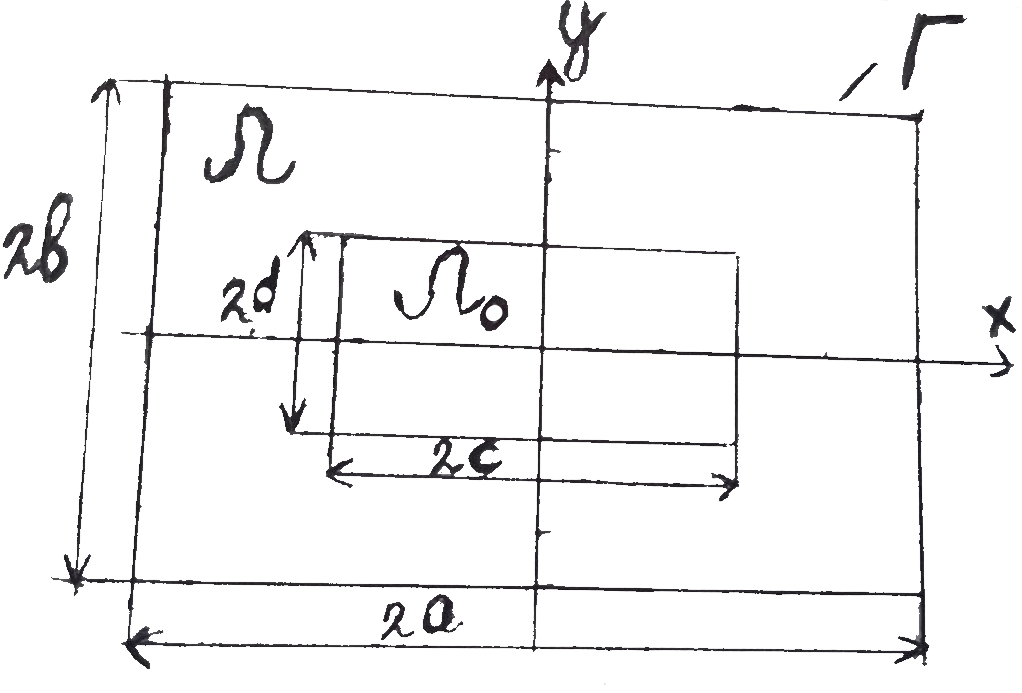 y
Γ
Ω
2b
2d
Ω₀
x
2c
2a